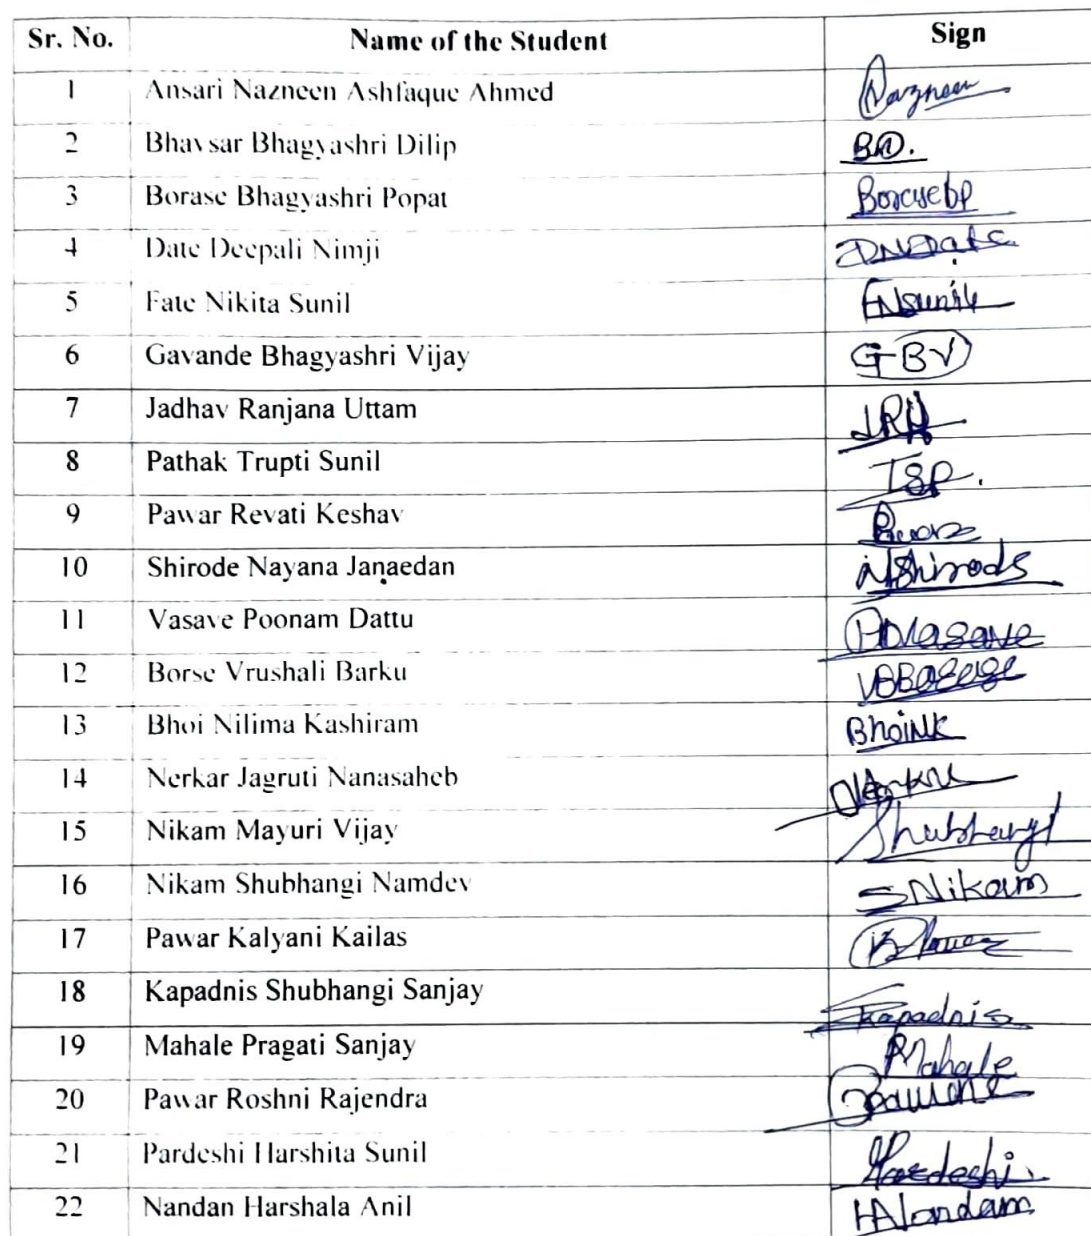 Sr. No. Name of the Student Sign
1 Ansari Nazneen Ashfaque Ahmed Nazneen
2 Bhavsar Bhagyashri Dilip BD.
3 Borase Bhagyashri Popat Borasebp
4 Date Deepali Nimji DNDate
5 Fate Nikita Sunil FNSunil
6 Gavande Bhagyashri Vijay GBV
7 Jadhav Ranjana Uttam
8 Pathak Trupti Sunil TSP.
9 Pawar Revati Keshav
10 Shirode Nayana Janaedan NShirode
11 Vasave Poonam Dattu PDVasave
12 Borse Vrushali Barku
13 Bhoi Nilima Kashiram BhoiNK
14 Nerkar Jagruti Nanasaheb
15 Nikam Mayuri Vijay Shubhangi
16 Nikam Shubhangi Namdev SNikam
17 Pawar Kalyani Kailas
18 Kapadnis Shubhangi Sanjay SKapadnis
19 Mahale Pragati Sanjay PMahale
20 Pawar Roshni Rajendra
21 Pardeshi Harshita Sunil Pardeshi.
22 Nandan Harshala Anil HANandan